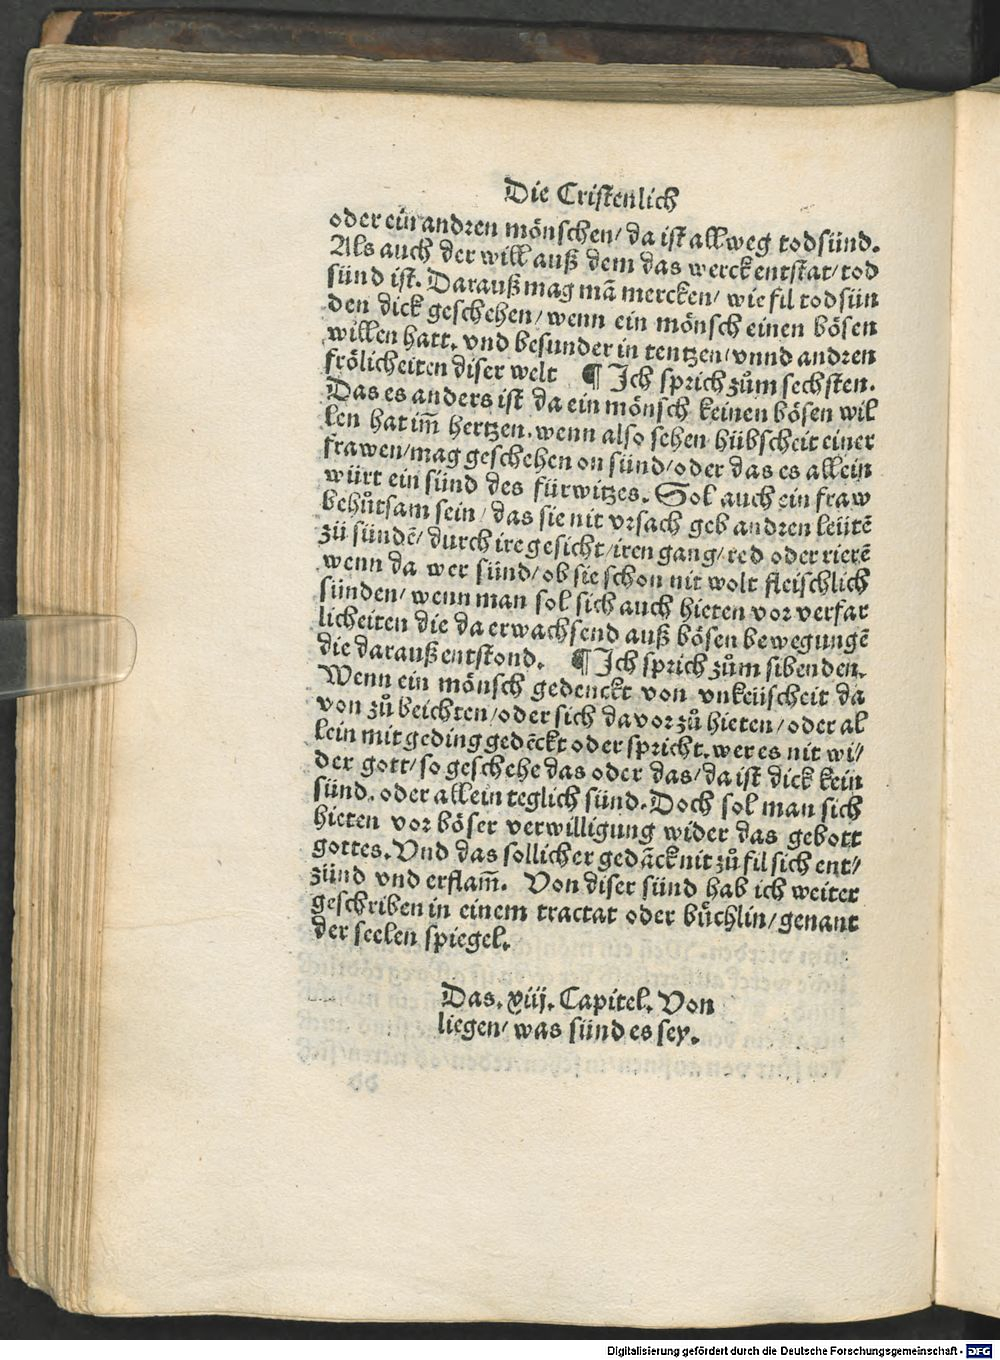 Die Cristenlich
oder ein andren mönschen/ da ist allweg todsünd.
Als auch der will auß dem das werck entstat/ tod
sünd ist. Darauß mag mā mercken/ wie fil todsün
den dick geschehen/ wenn ein mönsch einen bösen
willen hatt. vnd besunder in tentzen/ vnnd andren
frölicheiten diser welt ¶ Ich sprich zům sechsten.
Das es anders ist da ein mönsch keinen bösen wil
len hat im̄ hertzen. wenn also sehen hübscheit einer
frawen/ mag geschehen on sünd/ oder das es allein
würt ein sünd des fürwitzes. Sol auch ein fraw
behůtsam sein/ das sie nit vrsach geb andren leütē
zü sündē/ durch ire gesicht/ iren gang/ red oder rierē
wenn da wer sünd/ ob sie schon nit wolt fleischlich
sünden/ wenn man sol sich auch hieten vor verfar
licheiten die da erwachsend auß bösen bewegungē
die darauß entstond. ¶ Ich sprich zům sibenden.
Wenn ein mönsch gedenckt von vnkeüscheit da
von zů beichten/ oder sich davor zů hieten/ oder al
lein mit geding gedēckt oder spricht. wer es nit wi//
der gott/ so geschehe das oder das/ da ist dick kein
sünd. oder allein teglich sünd. Doch sol man sich
hieten vor böser verwilligung wider das gebott
gottes. Vnd das sollicher gedāck nit zů fil sich ent//
zünd vnd erflam̄. Von diser sünd hab ich weiter
geschriben in einem tractat oder büchlin/ genant
der seelen spiegel.
Das. xiij. Capitel. Von
liegen/ was sünd es sey.
Digitalisierung gefördert durch die Deutsche Forschungsgemeinschaft - DFG